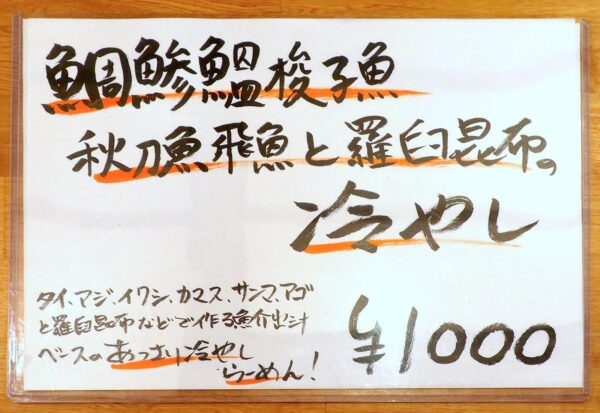 鯛鯵鰮梭子魚
秋刀魚飛魚と羅臼昆布の
冷やし
タイ、アジ、イワシ、カマス、サンマ、アゴ
と羅臼昆布などで作る魚介出汁
ベースのあっさり冷やし
らーめん!
¥1000